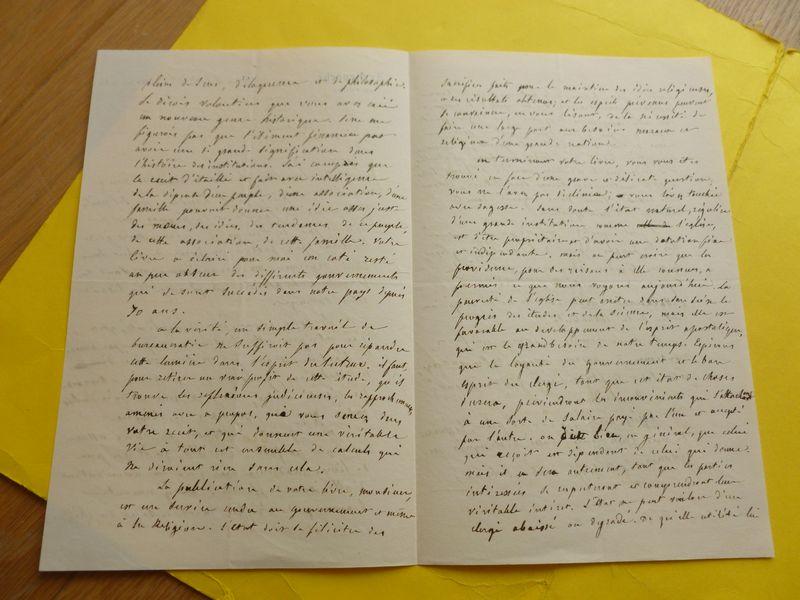 plein de sens, d'éloquence et de philosophie.
Je dirois volontiers que vous avez créé
un nouveau genre historique. Je ne me
figurois pas que l'élément financier pût
avoir une si grande signification dans
l'histoire des institutions. J'ai compris que
le récit détaillé et fait avec intelligence
de la dépense d'un peuple, d'une association, d'une
famille pouvoit donner une idée assez juste
des mœurs, des idées, des tendances de ce peuple,
de cette association, de cette famille. Votre
livre a éclairé pour moi un coté resté
un peu obscur des différents gouvernements
qui se sont succédés dans notre pays depuis
70 ans.
à la vérité, un simple travail de
bureaucratie ne suffiroit pas pour répandre
cette lumière dans l'esprit du lecteur. il faut,
pour retirer un vrai profit de cette étude, qu'il
trouve les réflexions judicieuses, les rapprochements
amenés avec à propos, que vous semez dans
votre récit, et qui donnent une véritable
vie à tout cet ensemble de calculs qui
ne diroient rien sans cela.
La publication de votre livre, monsieur,
est un service rendu au gouvernement et même
à la Religion. L'Etat doit se féliciter des
sacrifices faits pour le maintien des idées religieuses,
et des résultats obtenus; et les esprits prévenus peuvent
se convaincre, en vous lisant, de la nécessité de
faire une large part aux besoins moraux et
religieux d'une grande nation.
en terminant votre livre, vous vous êtes
trouvé en face d'une grave et délicate question,
vous ne l'avez pas déclinée; vous l'avez touchée
avec sagesse. Sans doute l'état naturel, régulier
d'une grande institution comme l'église,
est d'être propriétaire et d'avoir une dotation fixe
et indépendante. mais on peut croire que la
providence, pour des raisons à elle connues, a
permis ce que nous voyons aujourd'hui. La
pauvreté de l'église peut mettre dans son sein le
progrès des études et de la science, mais elle est
favorable au développement de l'esprit apostolique,
qui est le grand besoin de notre temps. Espérons
que la loyauté du gouvernement et le bon
esprit du clergé, tant que cet état de choses
durera, préviendront les inconvénients qui s'attachent
à une sorte de salaire payé par l'un et accepté
par l'autre. on dit bien, en général, que celui
qui reçoit est dépendant de celui qui donne.
mais il en sera autrement, tant que les parties
intéressées se respecteront et comprendront leur
véritable intérêt. L'Etat ne peut vouloir d'un
clergé abaissé ou dégradé. de quelle utilité lui